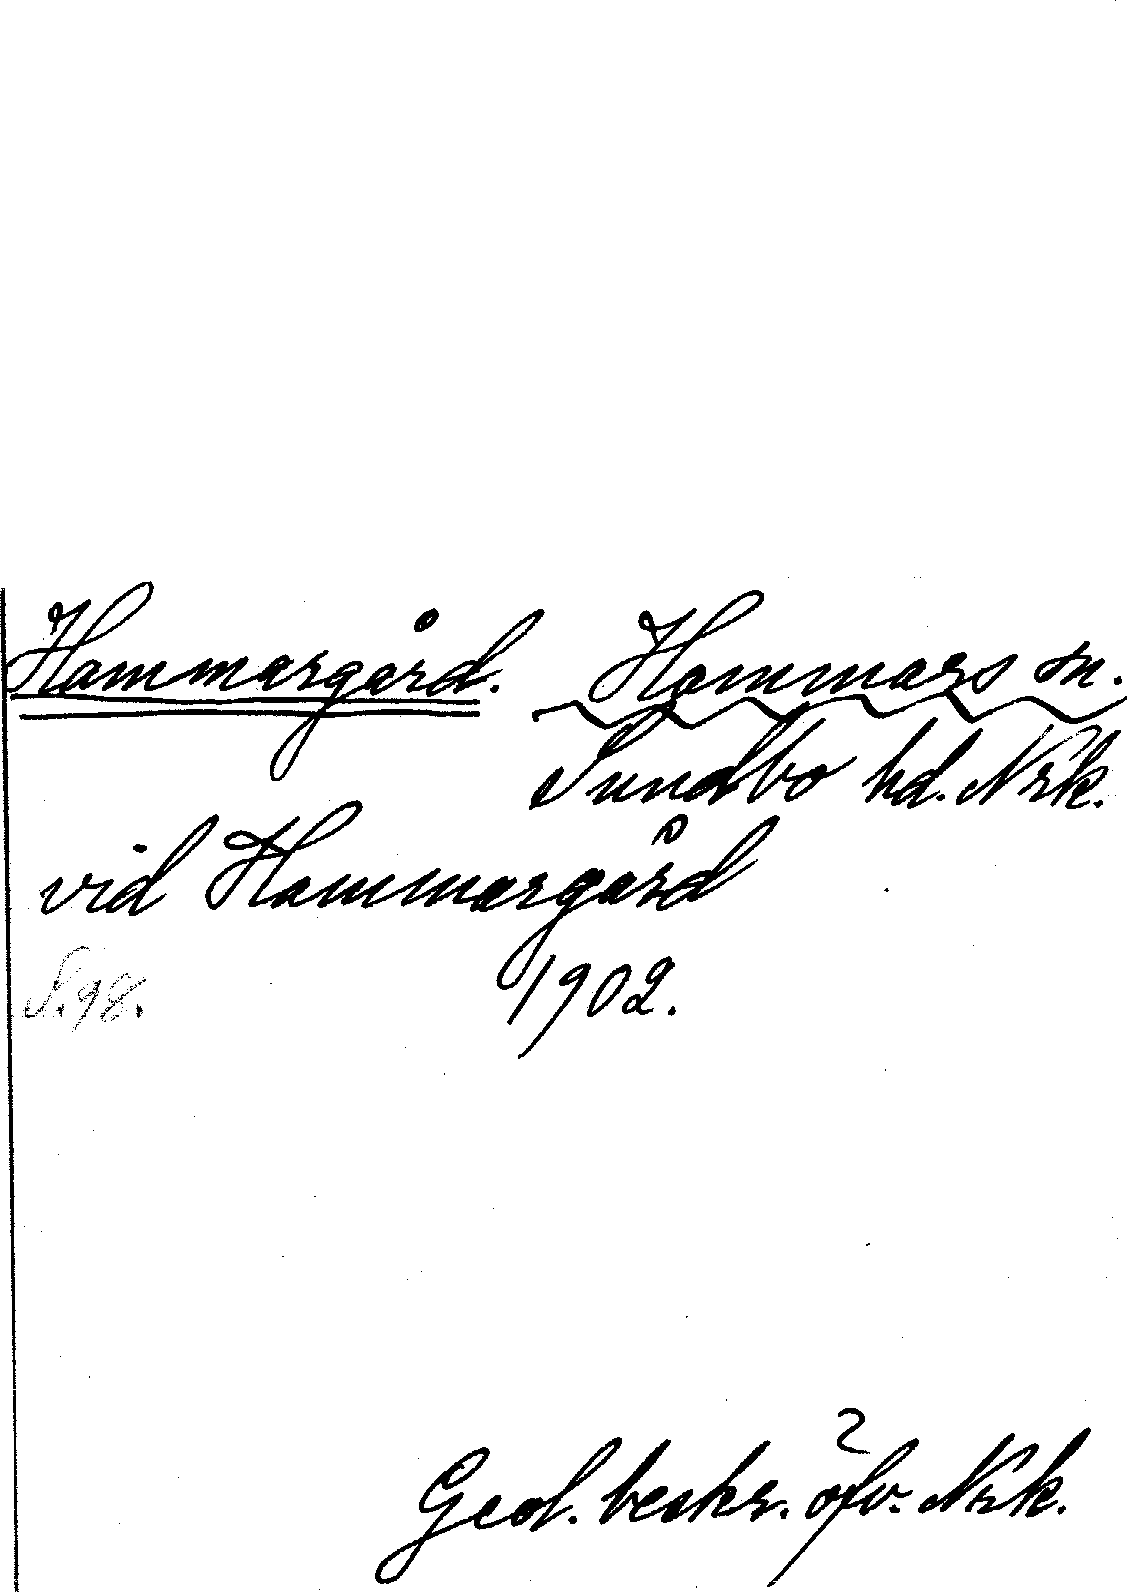 Hammargård. Hammars sn.
Sundbo hd. Nrk.
vid Hammargård
S. 98. 1902.
Geol. beskr. öfv. Nrk.